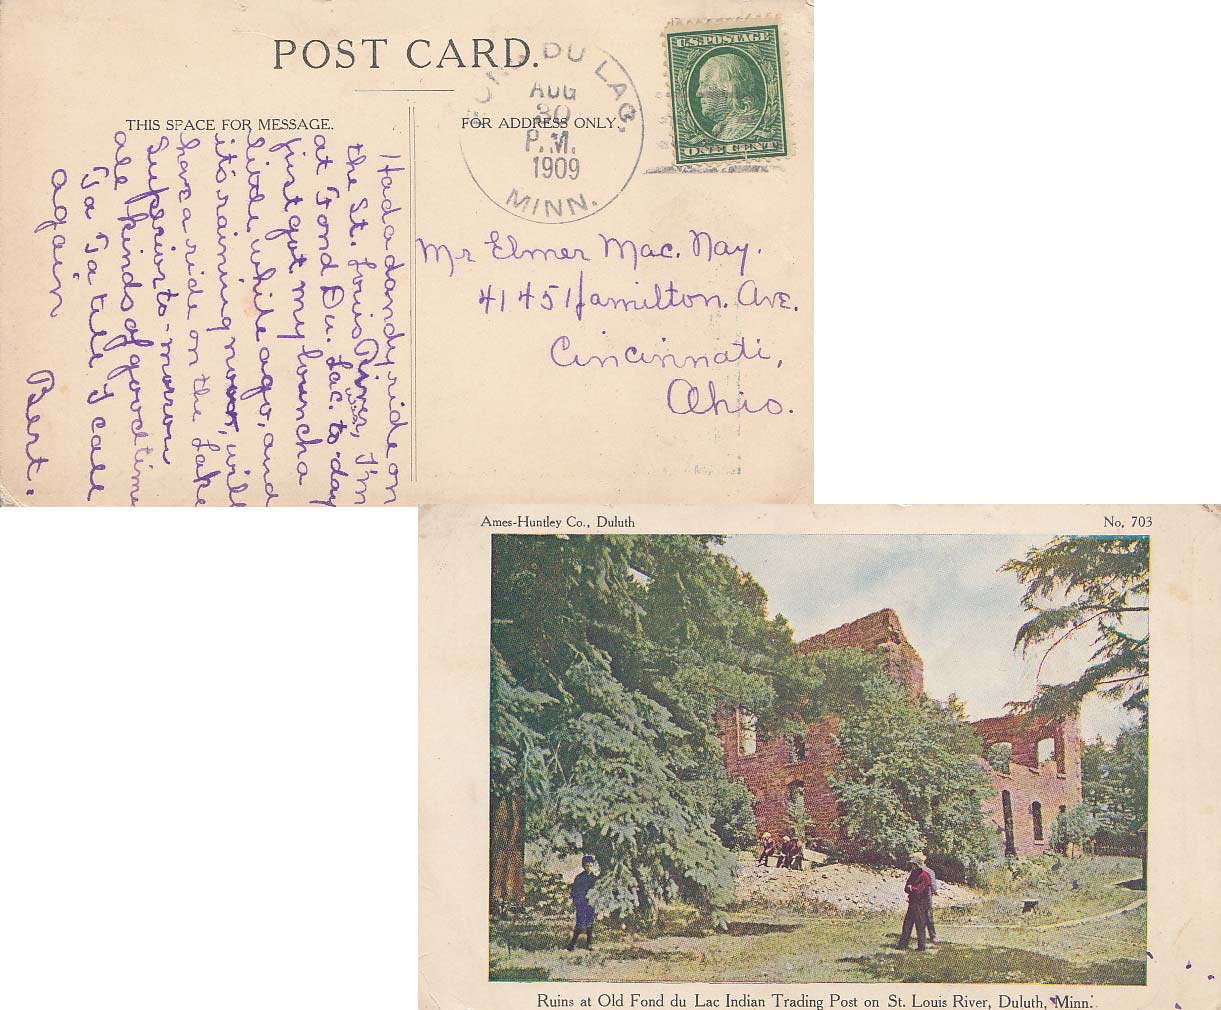 POST CARD.
THIS SPACE FOR MESSAGE.
FOR ADDRESS ONLY.
FOND DU LAC,
AUG
30
P.M.
1909
MINN.
U.S. POSTAGE
ONE CENT
Had a dandy ride on
the St. Louis River, I'm
at Fond Du. Lac. to-day
first got my lunch a
little while ago, and
it's raining now, will
have a ride on the Lake
Superior to-morrow
all kinds of good time
Ta Ta till I call
again
Bert.
Mr Elmer Mac. Nay.
4145 Hamilton. Ave.
Cincinnati,
Ohio.
Ames-Huntley Co., Duluth
No. 703
Ruins at Old Fond du Lac Indian Trading Post on St. Louis River, Duluth, Minn.